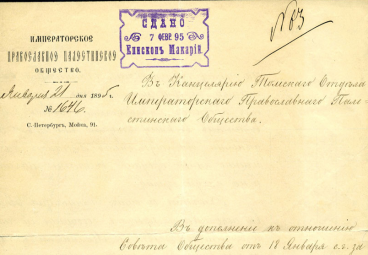 ИМПЕРАТОРСКОЕ
ПРАВОСЛАВНОЕ ПАЛЕСТИНСКОЕ
ОБЩЕСТВО.
Января 21 дня 1895 г.
№ 1646.
С.-Петербургъ, Мойка, 91.
СДАНО
7 ФЕВР. 95
Епископъ Макарій
№3
Въ Канцелярію Томскаго Отдѣла
Императорскаго Православнаго Пале-
стинскаго Общества.
Въ дополненіе къ отношенію
Совѣта Общества отъ 18 Января с.г. за